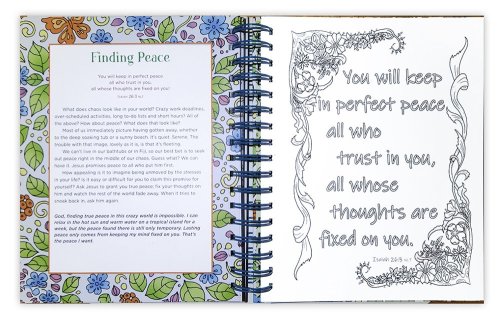 Finding Peace
You will keep in perfect peace
all who trust in you,
all whose thoughts are fixed on you!
Isaiah 26:3 NLT
What does chaos look like in your world? Crazy work deadlines,
over-scheduled activities, long to-do lists and short hours? All of
the above? How about peace? What does that look like?
Most of us immediately picture having gotten away, whether
to the deep soaking tub or a sunny beach. It's quiet. Serene. The
trouble with that image, lovely as it is, is that it's fleeting.
We can't live in our bathtubs or in Fiji, so our best bet is to seek
out peace right in the middle of our chaos. Guess what? We can
have it. Jesus promises peace to all who put him first.
How appealing is it to imagine being unmoved by the stresses
in your life? Is it easy or difficult for you to claim this promise for
yourself? Ask Jesus to grant you true peace; fix your thoughts on
him and watch the rest of the world fade away. When it tries to
sneak back in, ask him again.
God, finding true peace in this crazy world is impossible. I can
relax in the hot sun and warm water on a tropical island for a
week, but the peace found there is still only temporary. Lasting
peace only comes from keeping my mind fixed on you. That's
the peace I want.
You will keep
in perfect peace
all who
trust in you,
all whose
thoughts are
fixed on you.
Isaiah 26:3 NLT